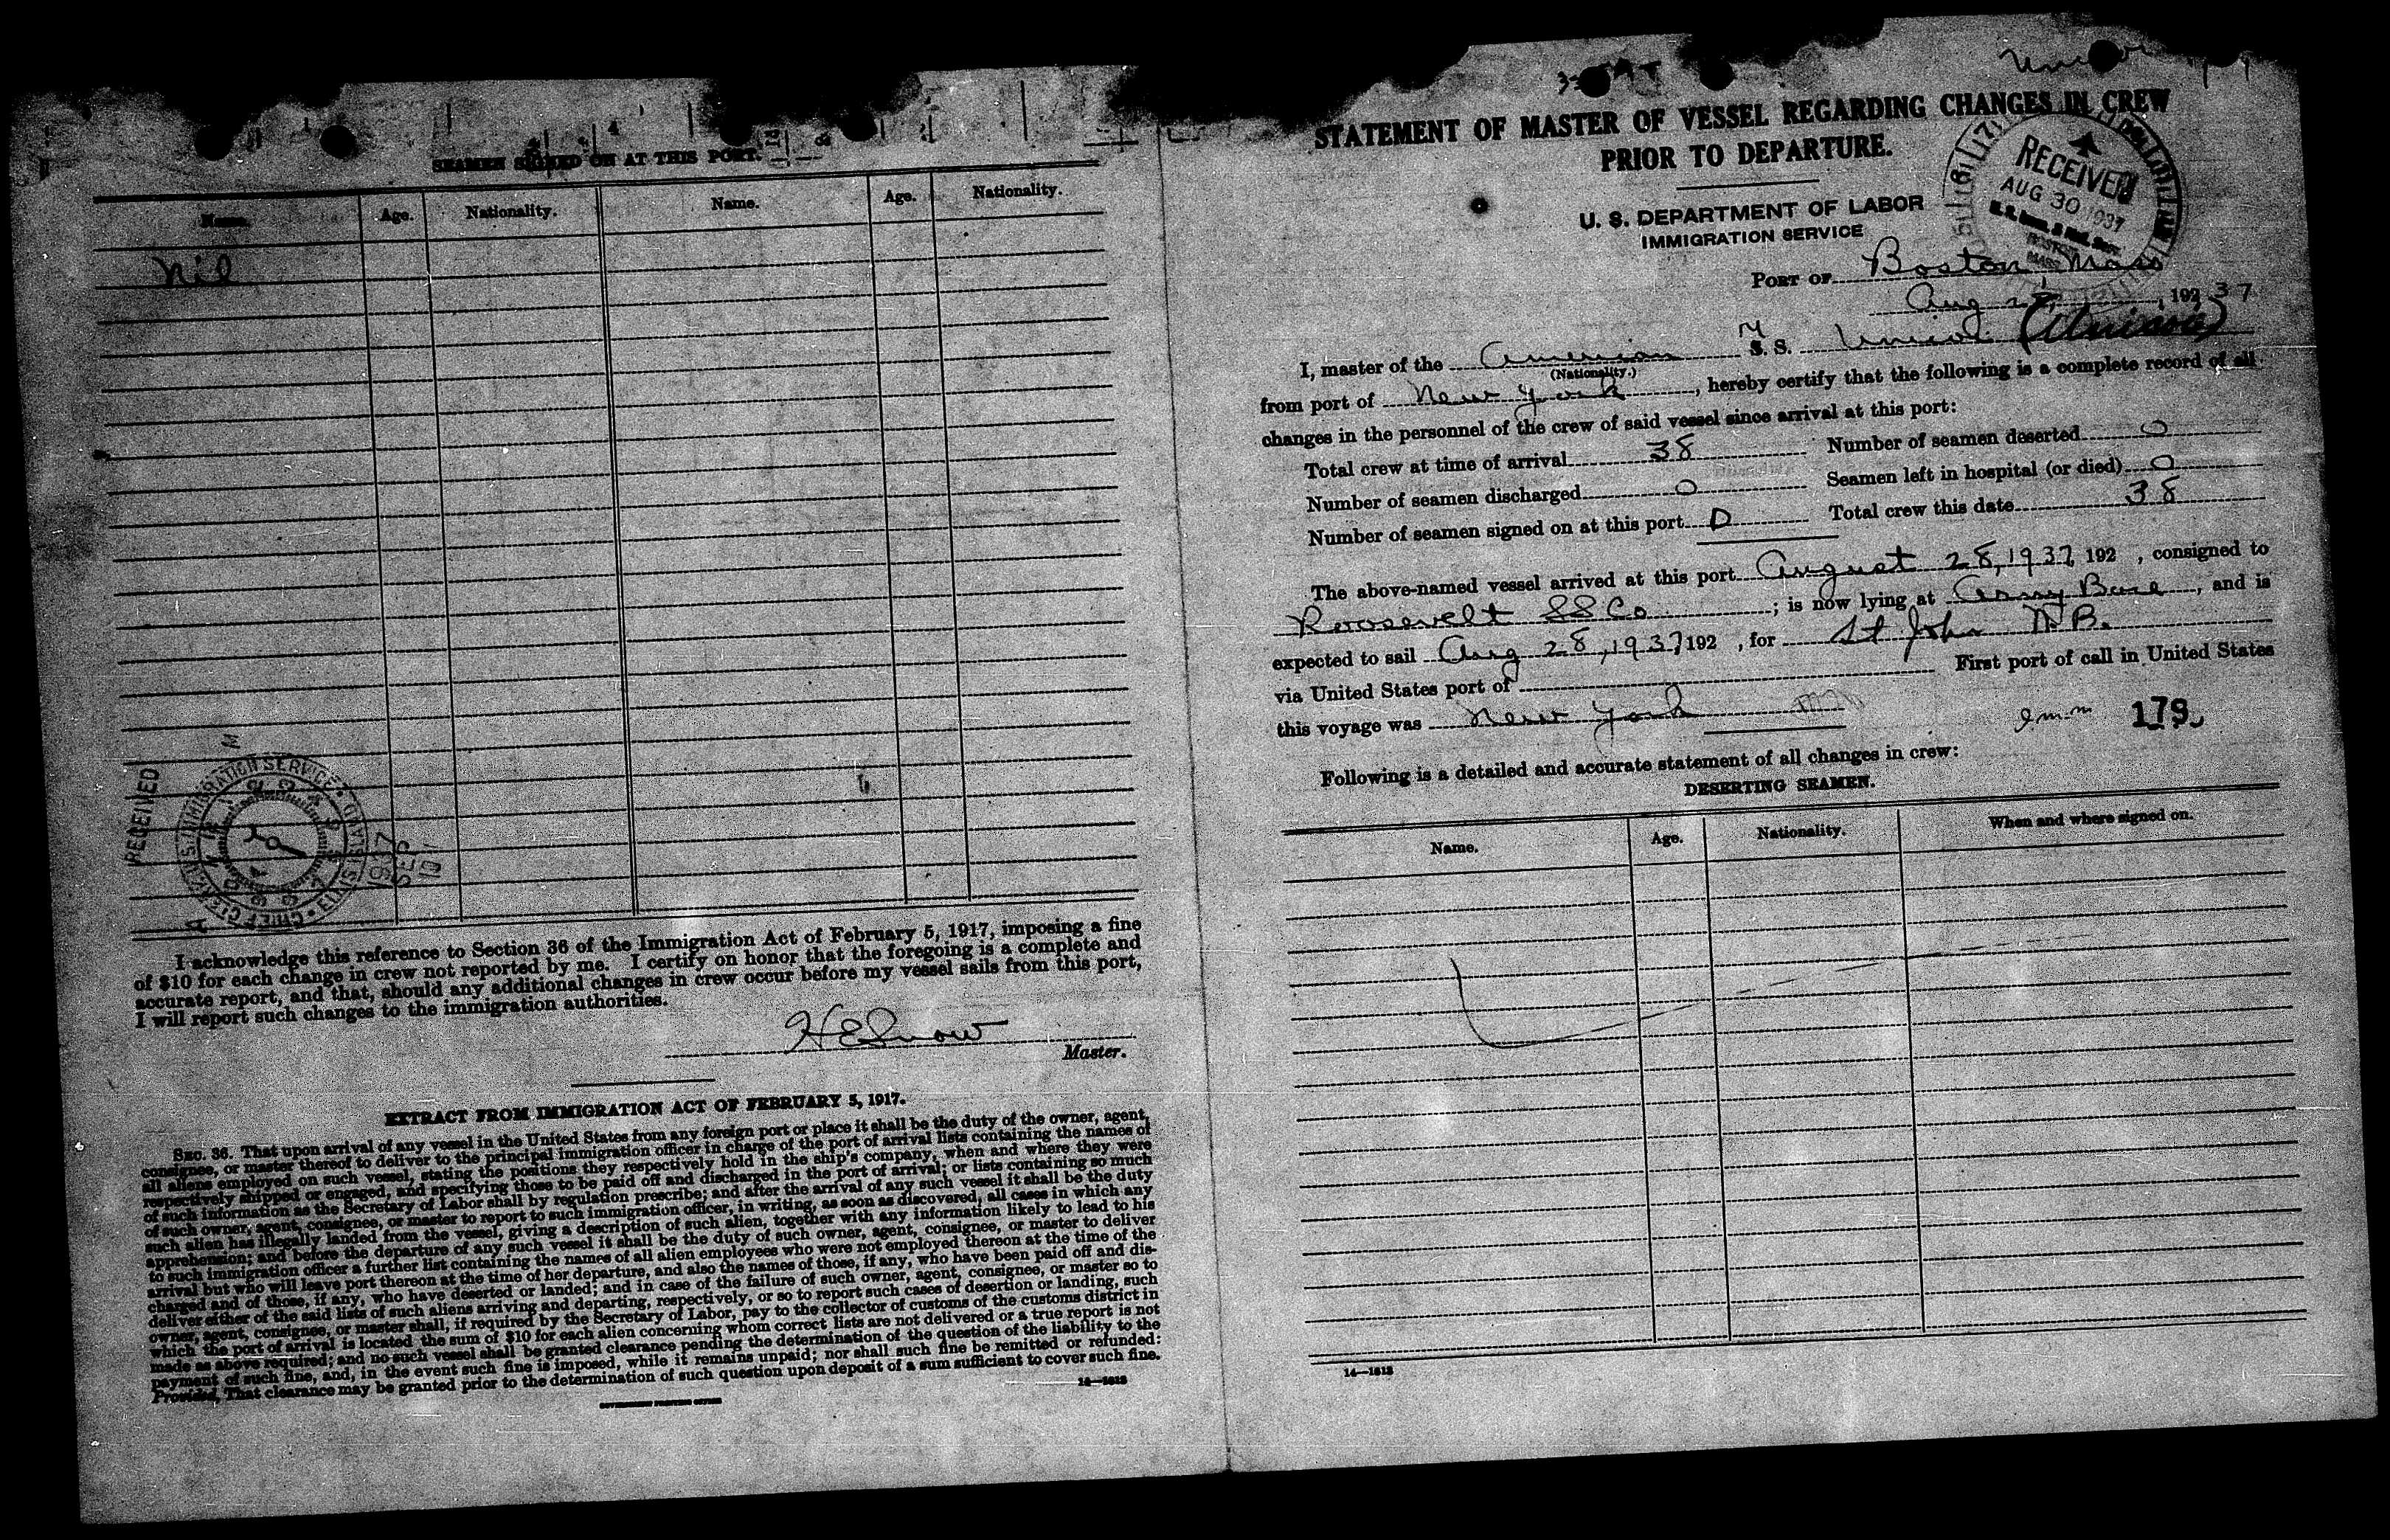 SEAMEN SIGNED ON AT THIS PORT.
Name. Age. Nationality. Name. Age. Nationality.
Nil
RECEIVED
IMMIGRATION SERVICE
1937
SEP
I acknowledge this reference to Section 36 of the Immigration Act of February 5, 1917, imposing a fine
of $10 for each change in crew not reported by me. I certify on honor that the foregoing is a complete and
accurate report, and that, should any additional changes in crew occur before my vessel sails from this port,
I will report such changes to the immigration authorities.
H E Snow
Master.
EXTRACT FROM IMMIGRATION ACT OF FEBRUARY 5, 1917.
SEC. 36. That upon arrival of any vessel in the United States from any foreign port or place it shall be the duty of the owner, agent,
consignee, or master thereof to deliver to the principal immigration officer in charge of the port of arrival lists containing the names of
all aliens employed on such vessel, stating the positions they respectively hold in the ship's company, when and where they were
respectively shipped or engaged, and specifying those to be paid off and discharged in the port of arrival; or lists containing so much
of such information as the Secretary of Labor shall by regulation prescribe; and after the arrival of any such vessel it shall be the duty
of such owner, agent, consignee, or master to report to such immigration officer, in writing, as soon as discovered, all cases in which any
such alien has illegally landed from the vessel, giving a description of such alien, together with any information likely to lead to his
apprehension; and before the departure of any such vessel it shall be the duty of such owner, agent, consignee, or master to deliver
to such immigration officer a further list containing the names of all alien employees who were not employed thereon at the time of the
arrival but who will leave port thereon at the time of her departure, and also the names of those, if any, who have been paid off and dis-
charged and of those, if any, who have deserted or landed; and in case of the failure of such owner, agent, consignee, or master so to
deliver either of the said lists of such aliens arriving and departing, respectively, or so to report such cases of desertion or landing, such
owner, agent, consignee, or master shall, if required by the Secretary of Labor, pay to the collector of customs of the customs district in
which the port of arrival is located the sum of $10 for each alien concerning whom correct lists are not delivered or a true report is not
made as above required; and no such vessel shall be granted clearance pending the determination of the question of the liability to the
payment of such fine, and, in the event such fine is imposed, while it remains unpaid; nor shall such fine be remitted or refunded:
Provided, That clearance may be granted prior to the determination of such question upon deposit of a sum sufficient to cover such fine.
14—1613
GOVERNMENT PRINTING OFFICE
STATEMENT OF MASTER OF VESSEL REGARDING CHANGES IN CREW
PRIOR TO DEPARTURE.
RECEIVED
AUG 30 1937
BOSTON
MASS
U. S. DEPARTMENT OF LABOR
IMMIGRATION SERVICE
PORT OF Boston, Mass
Aug 28, 192 37
I, master of the American M S. S. Unicoi (Unicoi)
(Nationality.)
from port of New York, hereby certify that the following is a complete record of all
changes in the personnel of the crew of said vessel since arrival at this port:
Total crew at time of arrival 38 Number of seamen deserted 0
Number of seamen discharged 0 Seamen left in hospital (or died) 0
Number of seamen signed on at this port 0 Total crew this date 38
The above-named vessel arrived at this port August 28, 1937, 192 , consigned to
Roosevelt SS Co ; is now lying at Army Base, and is
expected to sail Aug 28, 1937 192 , for St John N.B.
via United States port of First port of call in United States
this voyage was New York
179
Following is a detailed and accurate statement of all changes in crew:
DESERTING SEAMEN.
Name. Age. Nationality. When and where signed on.
14—1613